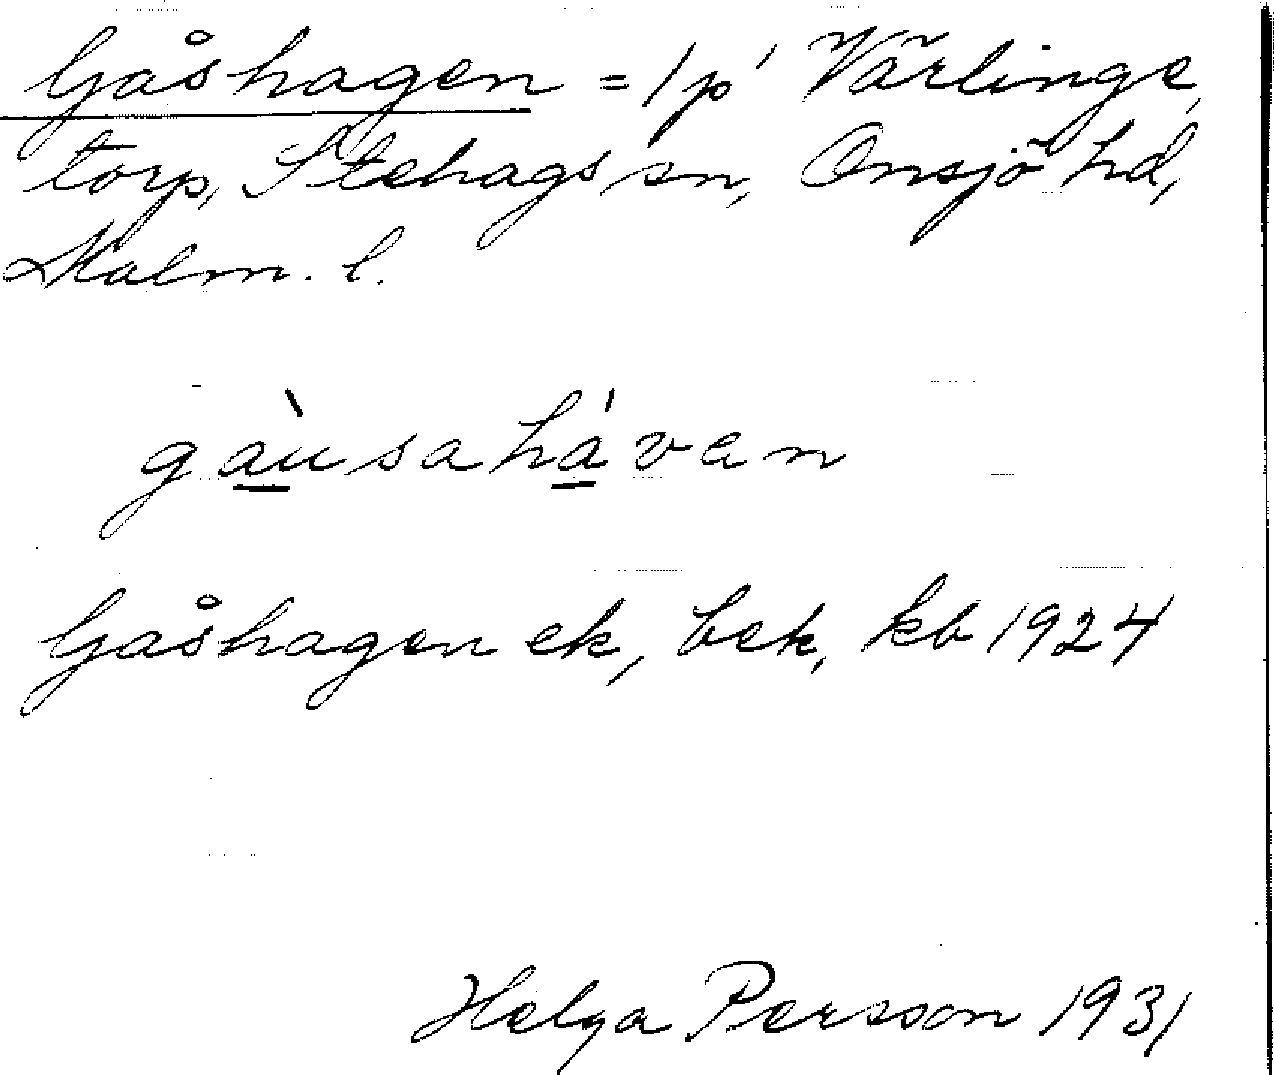 Gåshagen = 1 p' Värlinge
torp, Stehags sn, Onsjö hd,
Malm. l.
gàusahávan
Gåshagen ek, bek, kb 1924
Helga Persson 1931